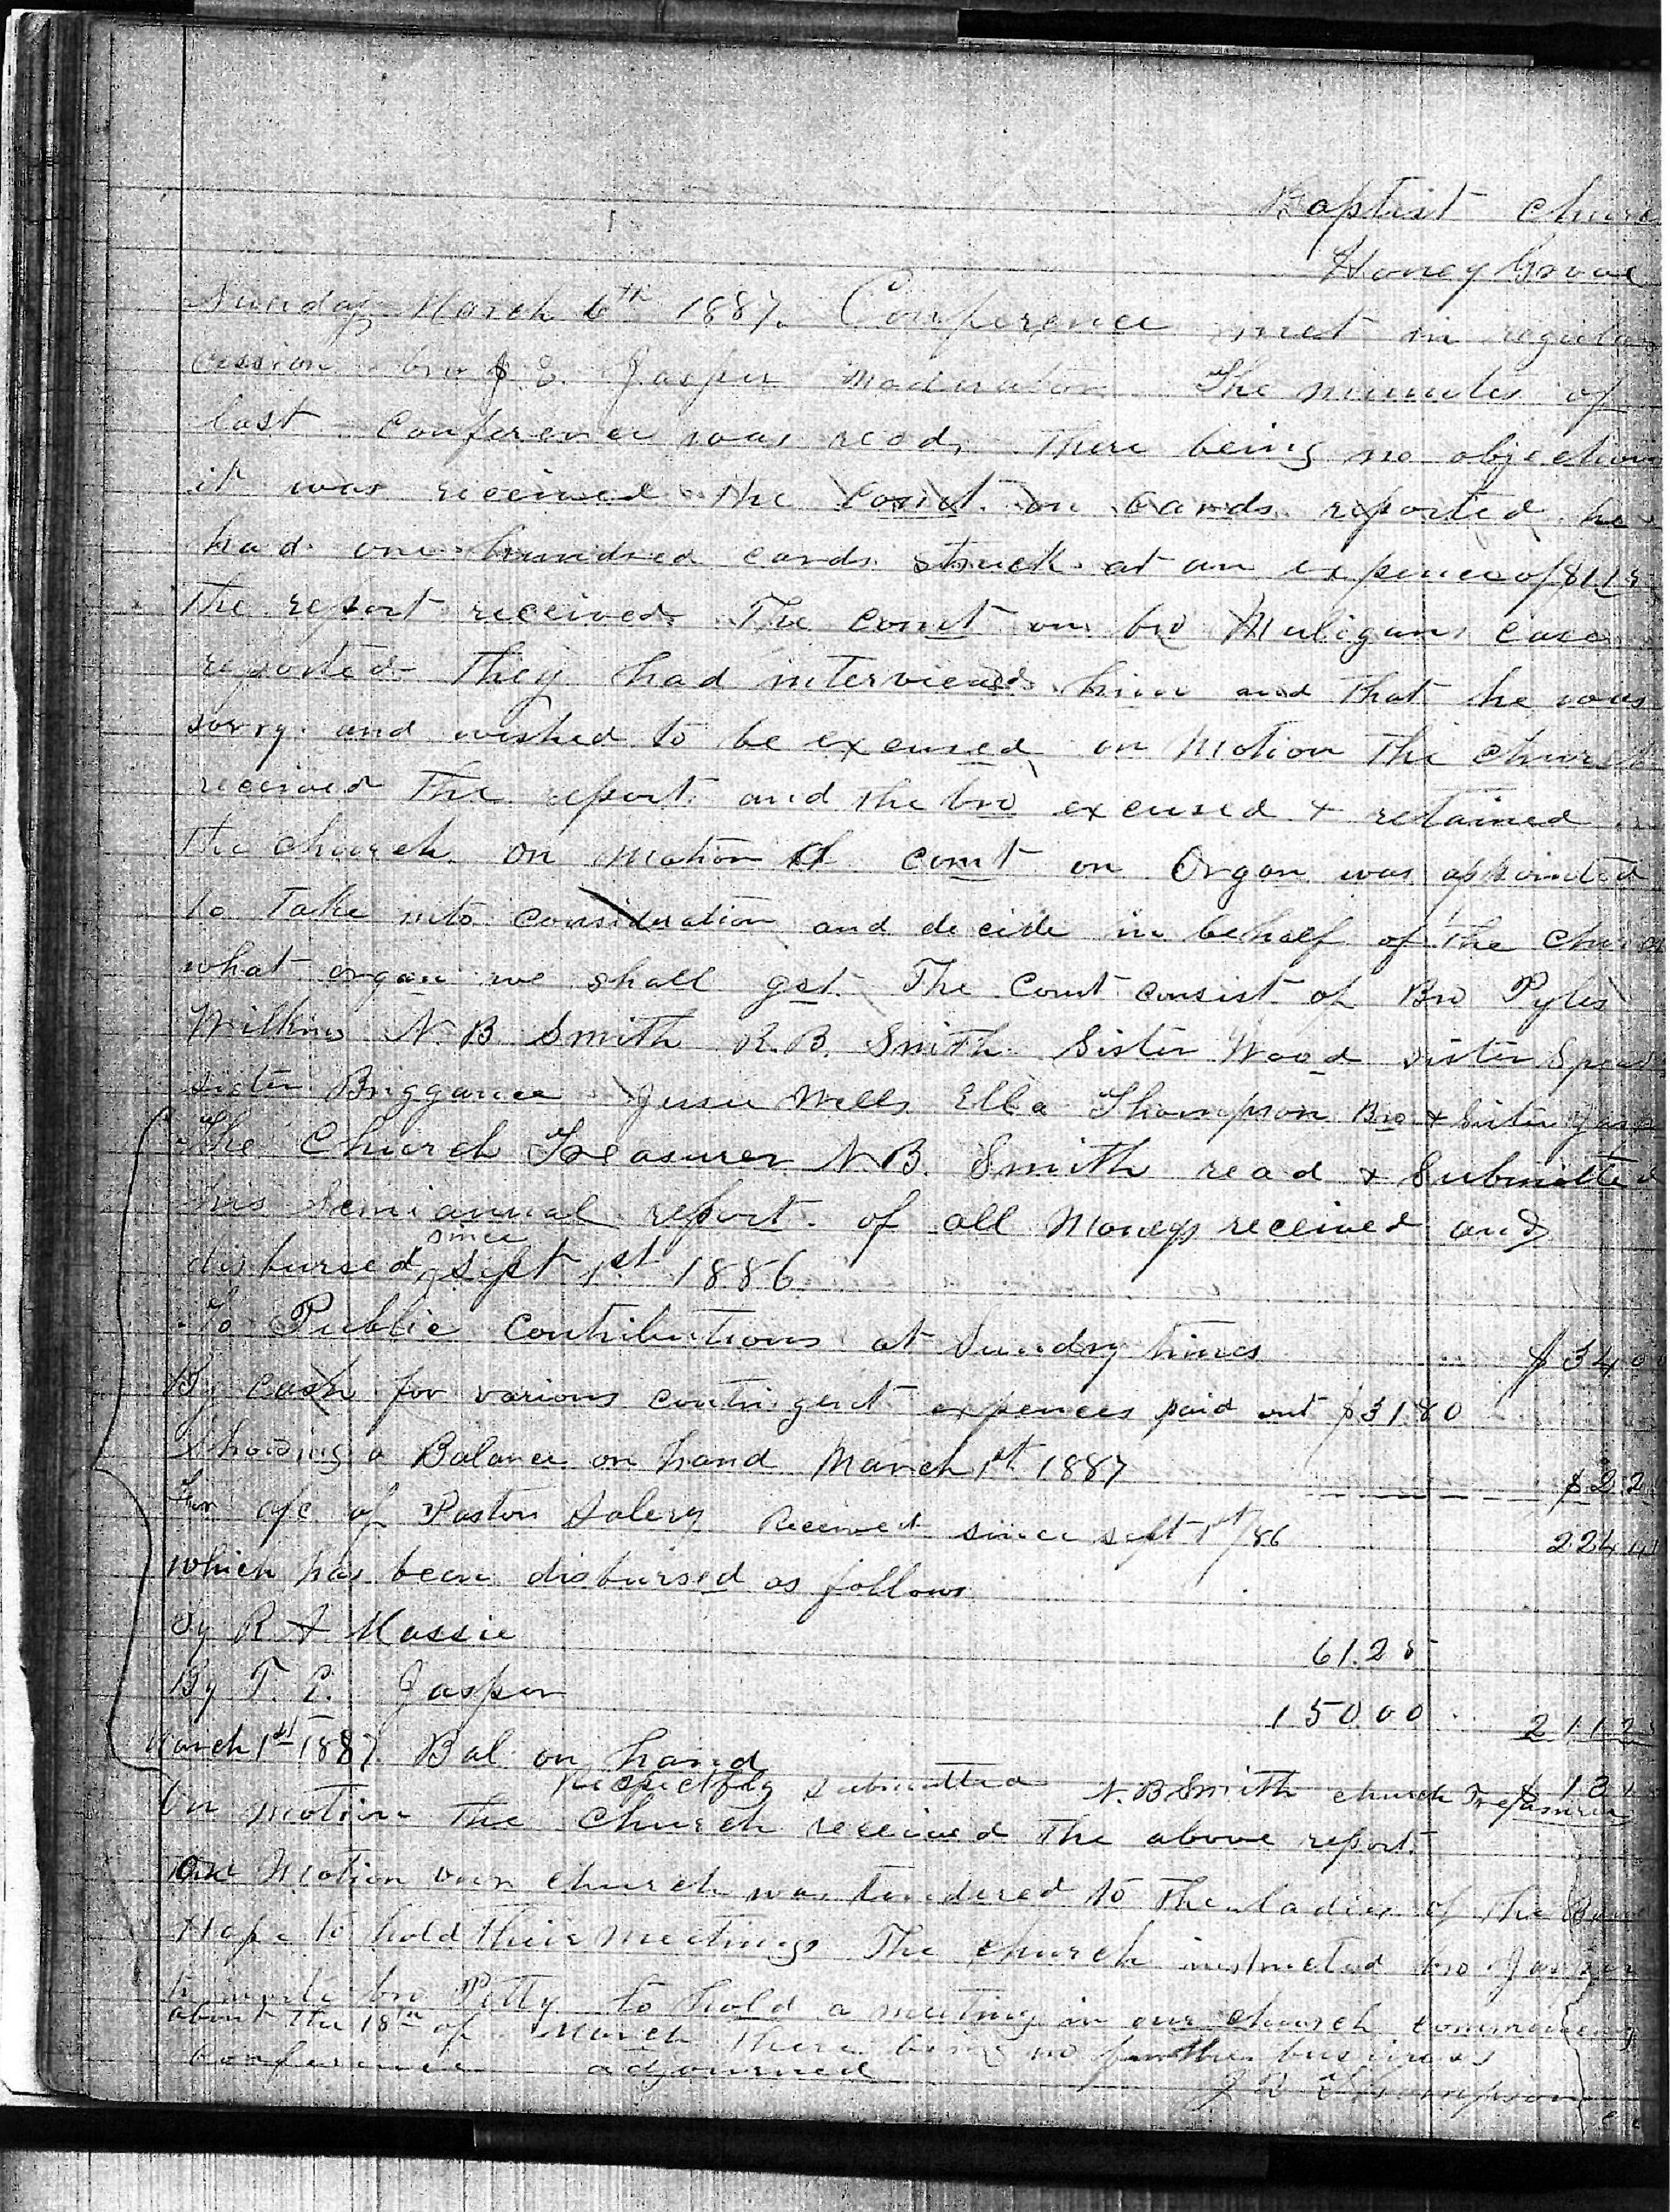 Baptist Churc
Honey Grove
Sunday March 6th 1887. Conference met in regular
cession bro J. E. Jasper Moderator The minutes of
last Conference was read, There being no objection
it was received the Comt. on Cards reported he
had one hundred cards struck at an expence of
The report received. The comt on bro Muligans case
reported They had interviewed him and That he was
sorry and wished to be excused on Motion The Church
received The report and the bro excused & retained in
the Church. On Motion A comt on Organ was appointed
to Take into consideration and decide in behalf of the Church
what organ we shall get. The Comt consist of Bro Pyles
Wilkins N. B. Smith R. B. Smith Sister Wood sister
sister Briggance Jessie Wells Ella Thompson Bro & Sister Jasp
The Church Treasurer N. B. Smith read & Submitted
his Semi annual report of all Moneys received and
disbursed since Sept 1st 1886
To Public Contributions at Sundry times $ 34 0
By cash for various contingent expences paid out $31.80
Showing a Balance on hand March 1st 1887 $ 2.2
a/c of Pastors Salery Received since Sept 1st/86 224 4
which has been disbursed as follows
By R A Massie 61.25
By T. E. Jasper 150.00 211 2
March 1st 1887. Bal on hand $ 13
Respectfuly submitted N. B Smith church Treasurer
On motion The Church received The above report.
On Motion our church was tendered to The ladies of The
Hope to hold their Meetings The church instructed bro Jasper
to invite bro Petty to hold a meeting in our church commencing
about the 18th of March There being no further business
Conference adjourned
J R Thompson